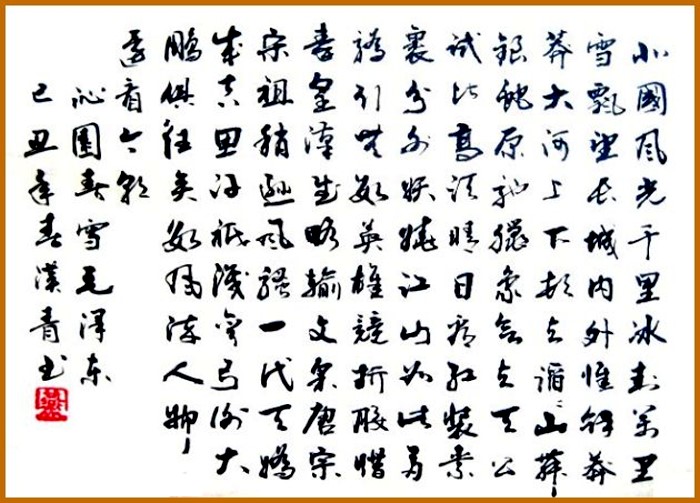 北國风光千里冰封万里
雪飘望长城内外惟馀莽
莽大河上下顿失滔滔山舞
银蛇原驰腊象欲与天公
试比高须晴日看红装素
裹分外妖娆江山如此多
娇引無数英雄竞折腰惜
秦皇漢武略输文采唐宗
宋祖稍逊风骚一代天骄
成吉思汗祇識弯弓射大
雕俱往矣数风流人物
还看今朝
沁園春雪毛泽东
己丑年春漢青书